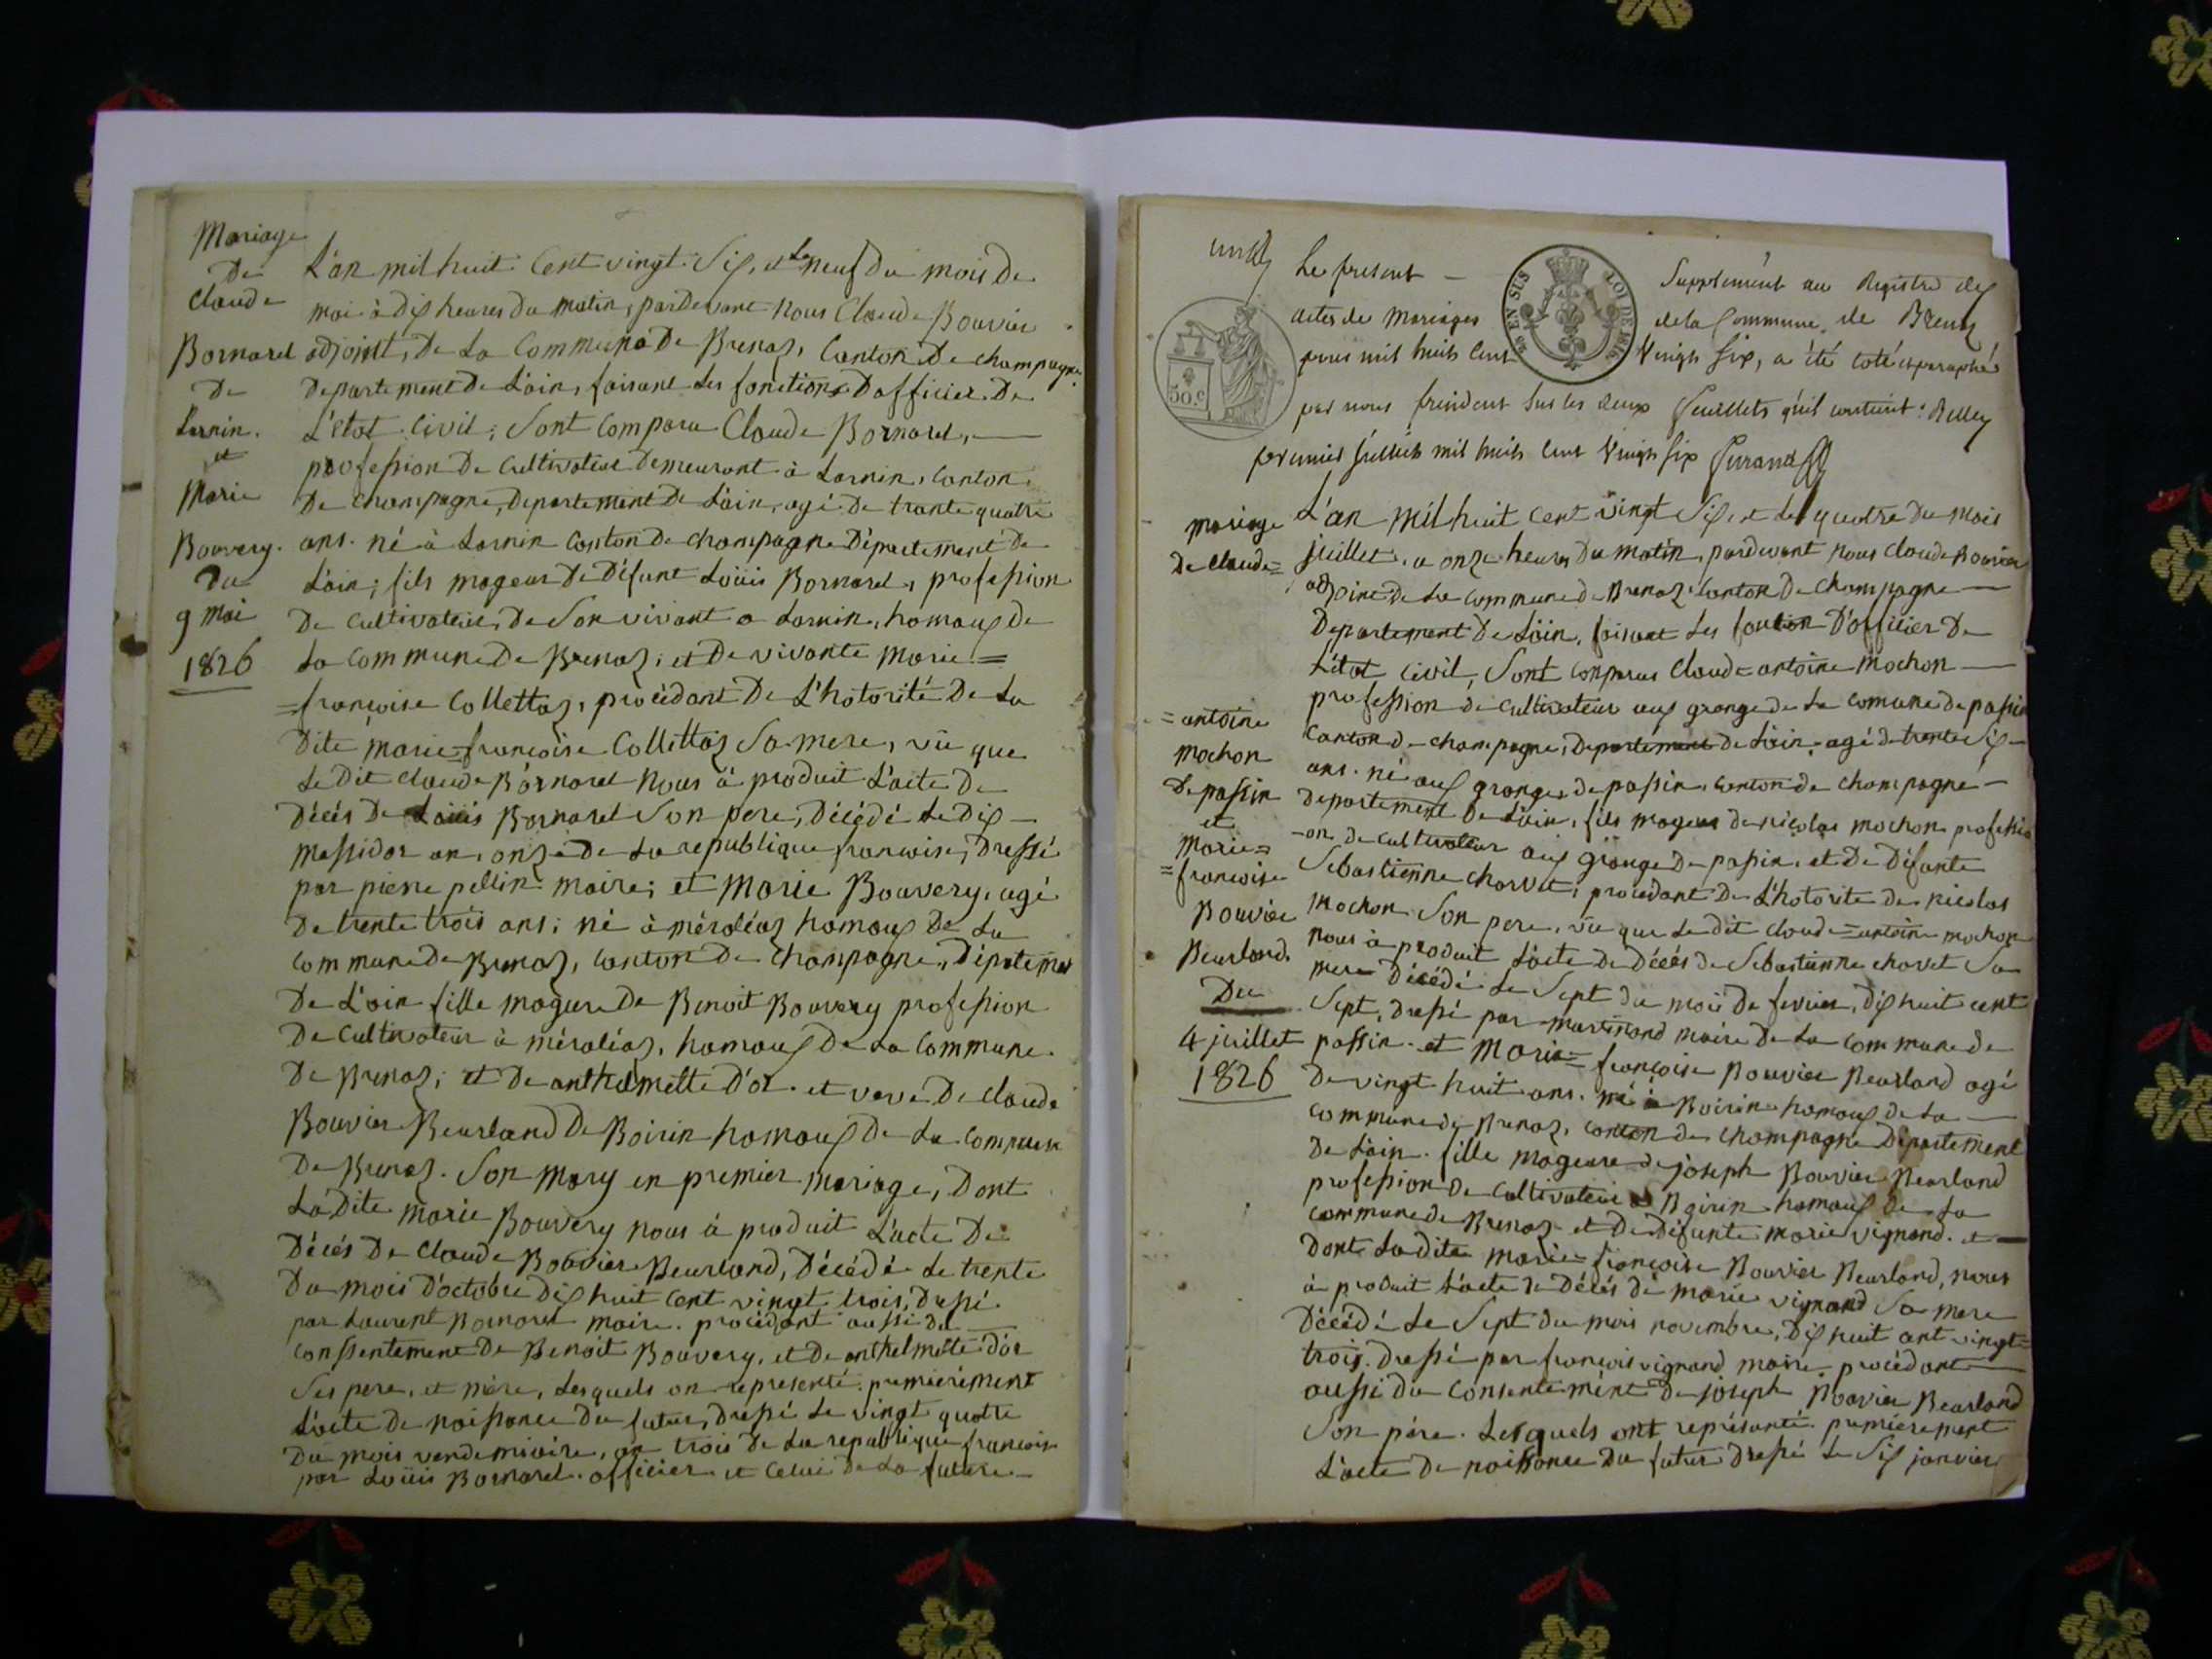 Mariage
De
Claude
Bornarel
De
Lornin.
et
Marie
Bouvery.
Du
9 mai
1826
L'an mil huit Cent vingt Six, et le neuf du mois de
mai à dix heures du matin, pardevant nous Claude Bouvier
adjoint, De La Commune De Brenaz, Canton De champagne
Departement De L'ain, faisant Les fonctions D'officier De
L'état Civil; Sont Comparu Claude Bornarel,
profession De Cultivateur Demeurant à Lornin, Canton
De Champagne, Departement De L'ain, agé De trante quatre
ans. né à Lornin Canton De champagne Département De
L'ain; fils mageur De Défunt Loüis Bornarel, profession
De Cultivateur, De Son vivant a Lornin, hamaux De
La Commune De Brenaz; et De vivante Marie =
= francoise Collettaz, procédant De L'hotorité De La
Dite marie = francoise Collettaz Sa mere, vü que
Le Dit Claude Bornarel Nous à produit L'acte De
Décés De Loüis Bornarel Son pere, Décédé Le Dix
Messidor an, onze De La republique francoise, Dressé
par pierre pellin maire; et Marie Bouvery, agé
De trente trois ans; né à méraléaz hamaux De La
Commune De Brenaz, Canton De Champagne, Dépatemet
De L'ain fille mageure De Benoit Bouvery profession
De Cultivateur à méraléaz, hamaux De La Commune
De Brenaz; et De anthelmette D'or. et veve De Claude
Bouvier Beurland De Boirin hamaux De La Commune
De Brenaz. Son Mary en premier mariage, Dont
La Dite Marie Bouvery nous à produit L'acte De
Décés De Claude Bouvier Beurland, Décédé Le trente
Du mois D'octobre Dix huit Cent vingt trois, Dressé
par Laurent Bornarel maire. procédant aussi du
Consentement De Benoit Bouvery, et De anthelmette D'or
Ses pere, et mère, Lesquels on representé premièrement
L'acte De naissance Du futur, Dressé Le vingt quatre
Du mois vendemiaire, an trois De La republique francoise
par Loüis Bornarel officier et Celui De La future
Le présent Supplément au Registre des
actes de Mariages de la Commune de Brenaz
pour mil huit Cent Vingt six, a été coté et paraphé
par nous président sur les deux feuillets qu'il contient: Belley
premier juillet mil huit Cent Vingt six
50.C
EN SUS
LOI DE 1816
mariage
De Claude =
= antoine
Mochon
De passin
et
Marie =
= francoise
Bouvier
Beurland.
Du
4 juillet
1826
L'an mil huit Cent vingt Six, et Le quatre du mois
juillet, a onze heures Du matin, pardevant nous Claude Bouvier
adjoint De La Commune De Brenaz Canton De Champagne
Departement De L'ain, faisant Les fontion D'officier De
L'état Civil, Sont Comparus Claude = antoine Mochon
profession De Cultivateur aux grange De La Comune De passin
Canton De Champagne, Departement De L'ain, agé De trente Six
ans. né aux granges De passin, Canton De Champagne
Departement De L'ain, fils mageur De nicolas mochon professi
-on De Cultivateur aux Grange De passin, et De Défunte
Sebastienne Charvet, procédant De L'hotorite De nicolas
Mochon Son pere, vü que Le Dit Claude = antoine mochon
nous à produit L'acte De Décés De Sebastienne Charvet Sa
mere Décédé Le Sept Du mois De fevrier, Dix huit cent
Sept, Dressé par martinand maire De La Commune De
passin. et Marie = francoise Bouvier Beurland agé
De vingt huit ans. né à Boirin hamaux De La
Commune De Brenaz, Canton De Champagne Département
De L'ain. fille mageure De joseph Bouvier Beurland
profession De Cultivateur à Boirin hamaux De La
Commune De Brenaz et De Défunte marie vignand. et
Dont La Dite marie = francoise Bouvier Beurland, nous
à produit L'acte De Décés De marie vignand Sa mere
Décédé Le Sept Du mois novembre, Dix huit cent vingt =
trois. Dressé par francois vignand maire procédant
aussi Du Consentemént De joseph Bouvier Beurland
Son pére. Lesquels ont représanté premièrement
L'acte De naissance Du futur Dressé Le Six janvier